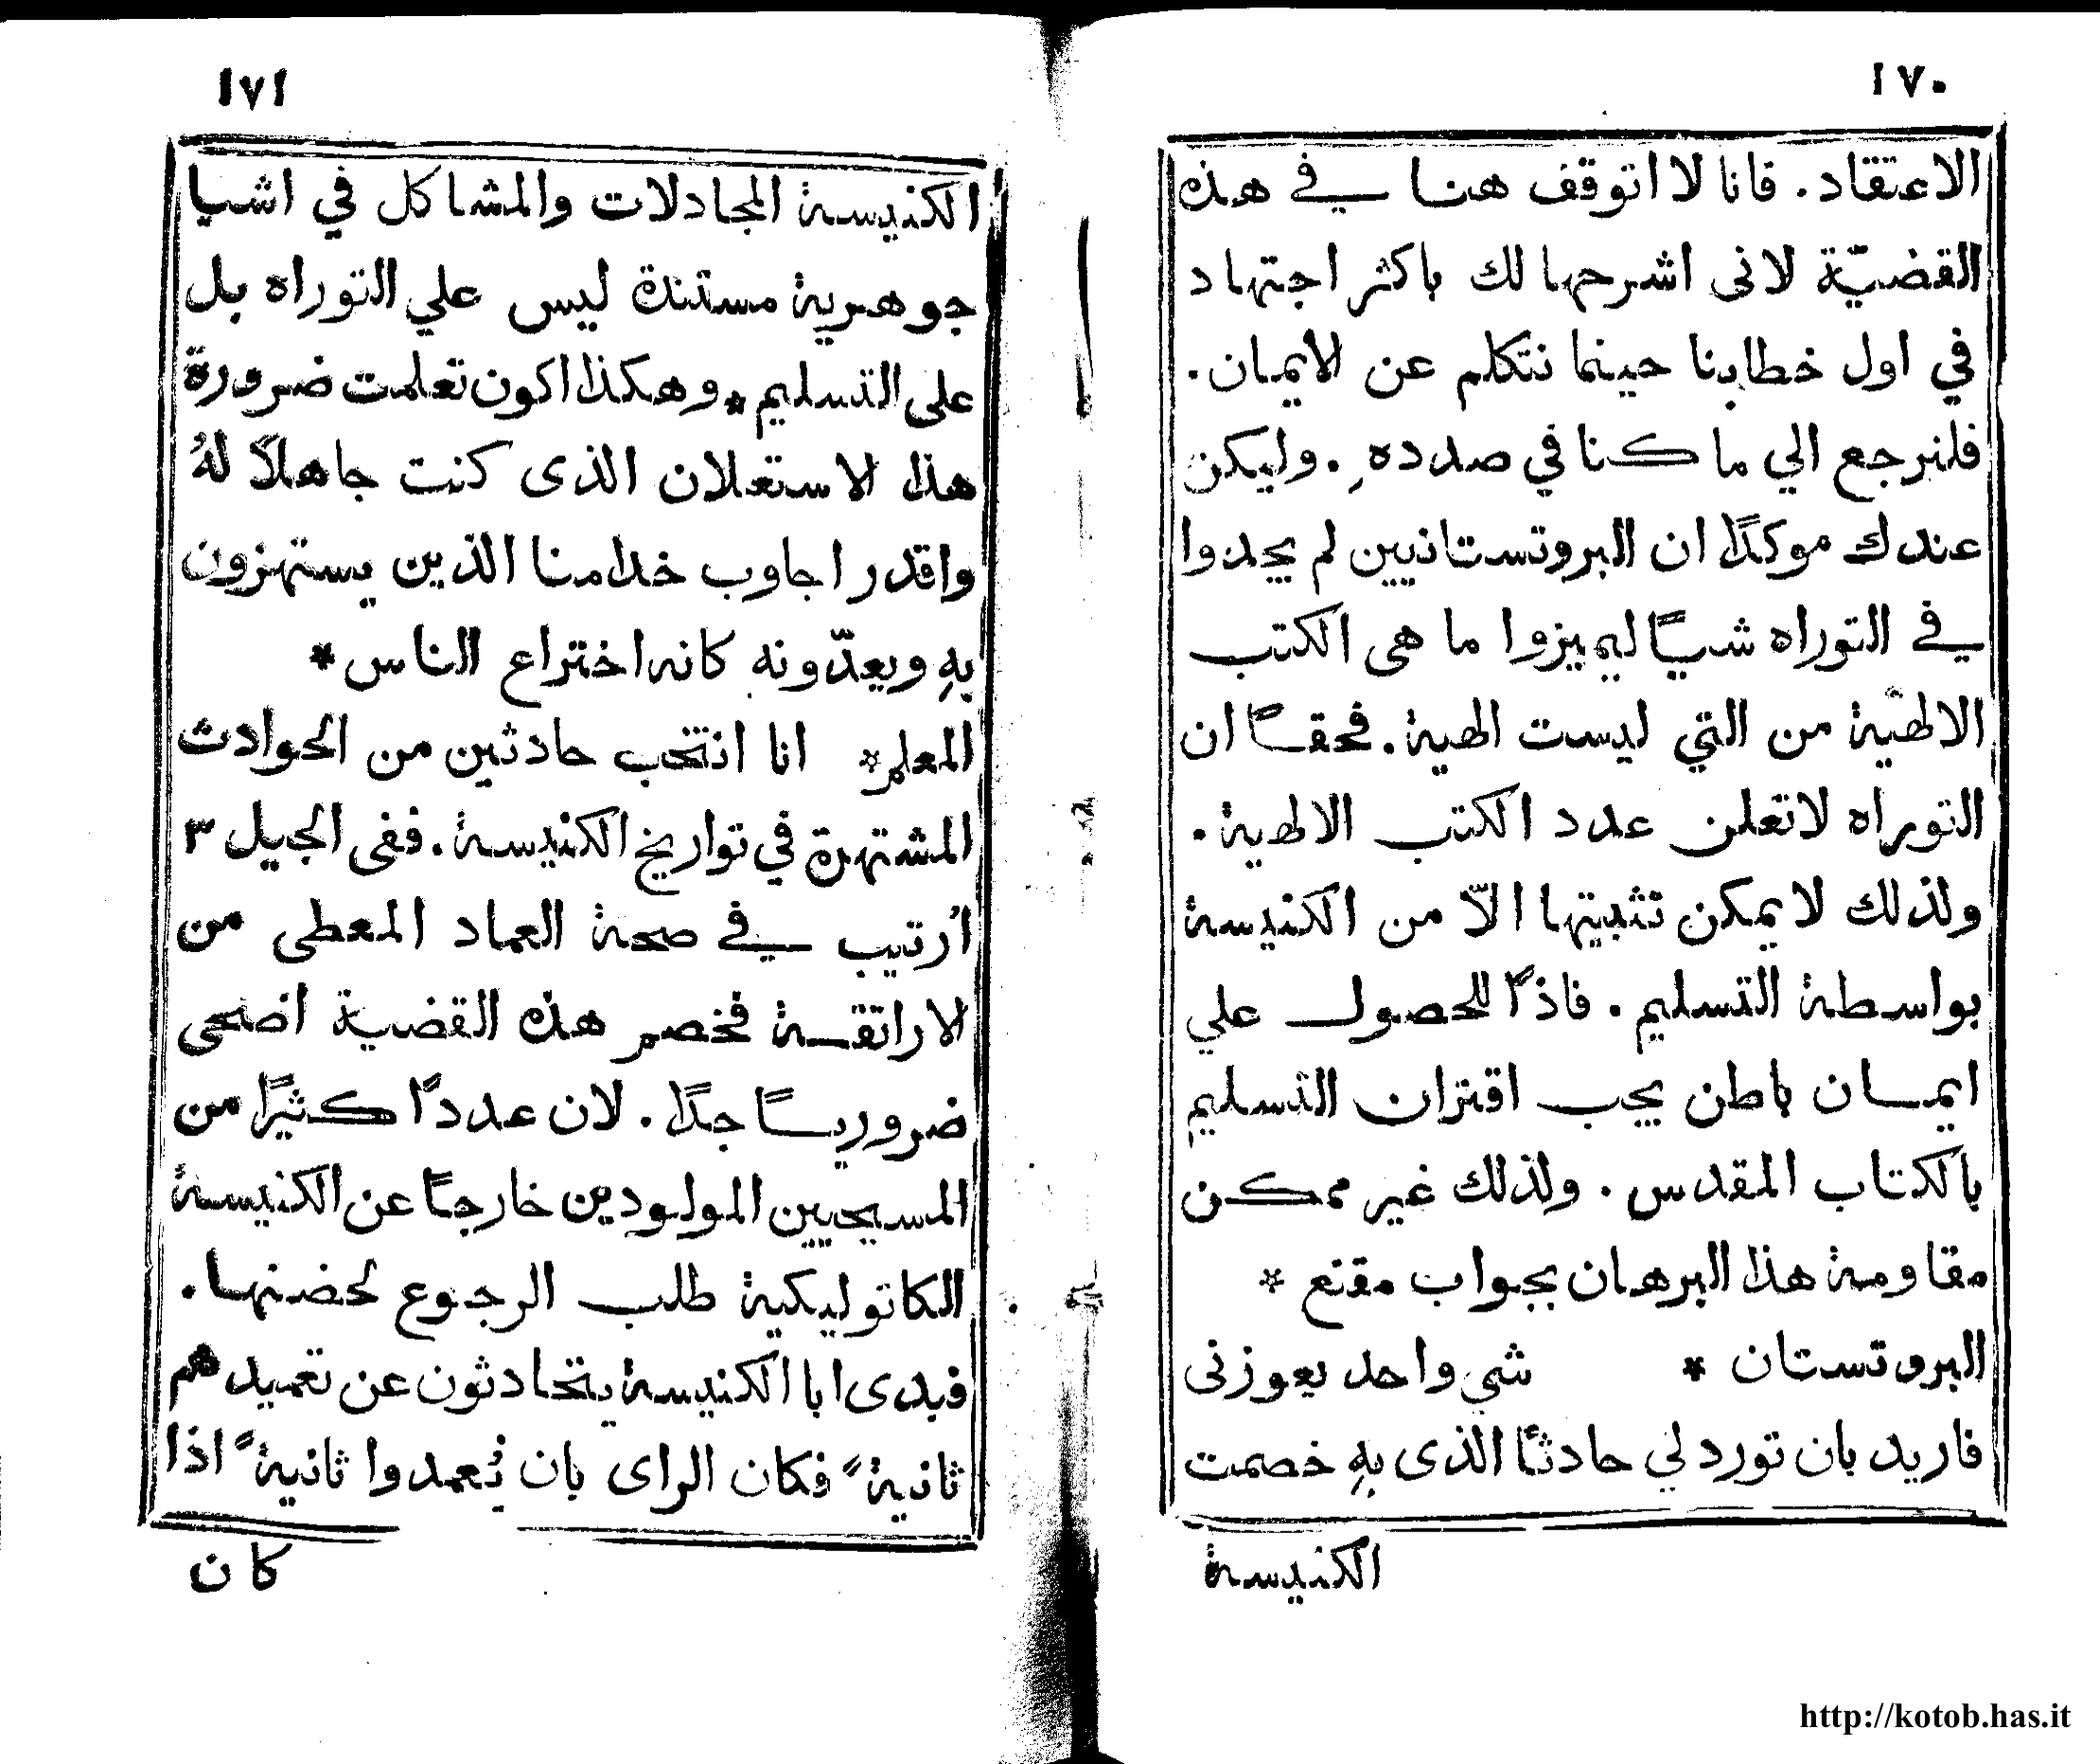 ١٧٠
الاعتقاد. فانا لا اتوقف هنا في هذه
القضيّة لانى اشرحها لك باكثر اجتهاد
في اول خطابنا حينما نتكلم عن الايمان.
فلنرجع الي ما كنا في صدده. وليكن
عندك موكدًا ان البروتستانيين لم يجدوا
في التوراه شيًا ليميزوا ما هى الكتب
الالهيّة من التي ليست الهية. فحقًا ان
التوراه لا تعلن عدد الكتب الالهية.
ولذلك لا يمكن تثبيتها الّا من الكنيسة
بواسطة التسليم. فاذًا للحصول علي
ايمان باطن يجب اقتران التسليم
بالكتاب المقدس. ولذلك غير ممكن
مقاومة هذا البرهان بجواب مقنع *
البروتستان * شي واحد يعوزنى
فاريد بان تورد لي حادثًا الذى بهِ خصمت
الكنيسة
١٧١
الكنيسة المجادلات والمشاكل في اشيا
جوهرية مستندة ليس علي التوراه بل
على التسليم * وهكذا اكون تعلمت ضرورة
هذا الاستعلان الذى كنت جاهلًا لهُ
واقدر اجاوب خدامنا الذين يستهزون
بهِ ويعدّونه كانه اختراع الناس *
المعلم * انا انتخب حادثين من الحوادث
المشتهرة في تواريخ الكنيسة. ففى الجيل ٣
اُرتيب في صحة العماد المعطى من
الاراتقة فخصم هذه القضية اضحى
ضروريًا جدًا. لان عددًا كثيرًا من
المسيحيين المولودين خارجًا عن الكنيسة
الكاتوليكية طلب الرجوع لحضنها.
فبدى ابا الكنيسة يتحادثون عن تعميدهم
ثانيةً فكان الراى بان يُعمدوا ثانيةً اذا
كان
http://kotob.has.it